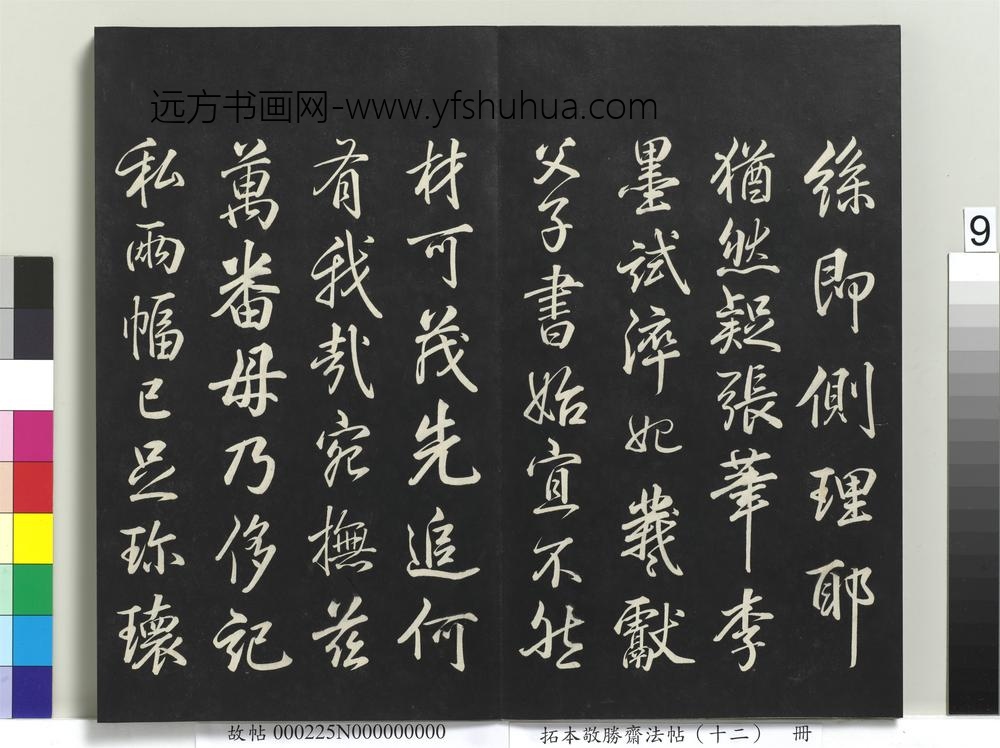 远方书画网-www.yfshuhua.com
絲即側理耶
猶然疑張華李
墨試淬妃羲獻
父子書始宜不然
材可茂先追何
有我哉宛撫茲
萬番毋乃侈記
私兩幅已足珎瓌
9
故帖 000225N000000000
拓本敬勝齋法帖（十二） 冊